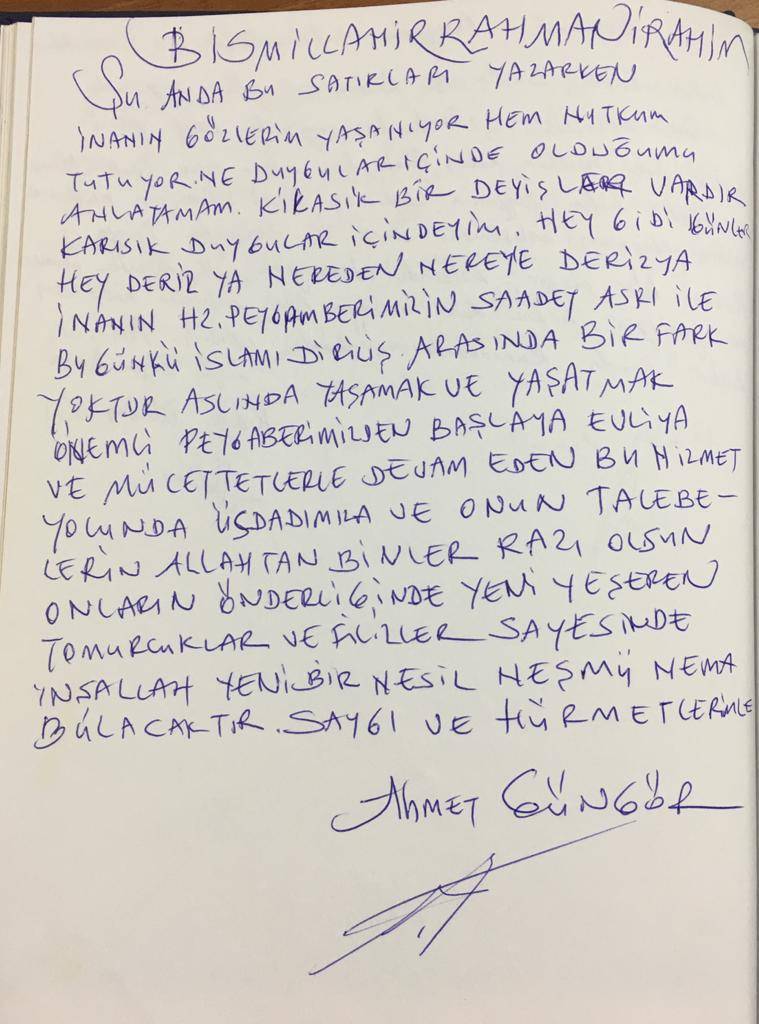 BİSMİLLAHİRRAHMANİRAHİM
ŞU ANDA BU SATIRLARI YAZARKEN
İNANIN GÖZLERİM YAŞANIYOR HEM NUTKUM
TUTUYOR. NE DUYGULAR İÇİNDE OLDUĞUMU
ANLATAMAM. KİLASİK BİR DEYİŞ VARDIR
KARISIK DUYGULAR İÇİNDEYİM. HEY GİDİ GÜNLER
HEY DERİZ YA NEREDEN NEREYE DERİZYA
İNANIN HZ. PEYGAMBERİMİZİN SAADET ASRI İLE
BU GÜNKÜ İSLAMI DİRİLİŞ ARASINDA BİR FARK
YOKTUR ASLINDA YAŞAMAK VE YAŞATMAK
ÖNEMLİ PEYGABERİMİZDEN BAŞLAYA EVLİYA
VE MÜCETTETLERLE DEVAM EDEN BU HİZMET
YOLUNDA ÜSDADIMIZA VE ONUN TALEBE-
LERİN ALLAHTAN BİNLER RAZI OLSUN
ONLARIN ÖNDERLİĞİNDE YENİ YEŞEREN
TOMURCUKLAR VE FİLİZLER SAYESİNDE
İNŞALLAH YENİ BİR NESİL NEŞMÜ NEMA
BULACAKTIR. SAYGI VE HÜRMETLERİMLE
AHMET GÜNGÖR